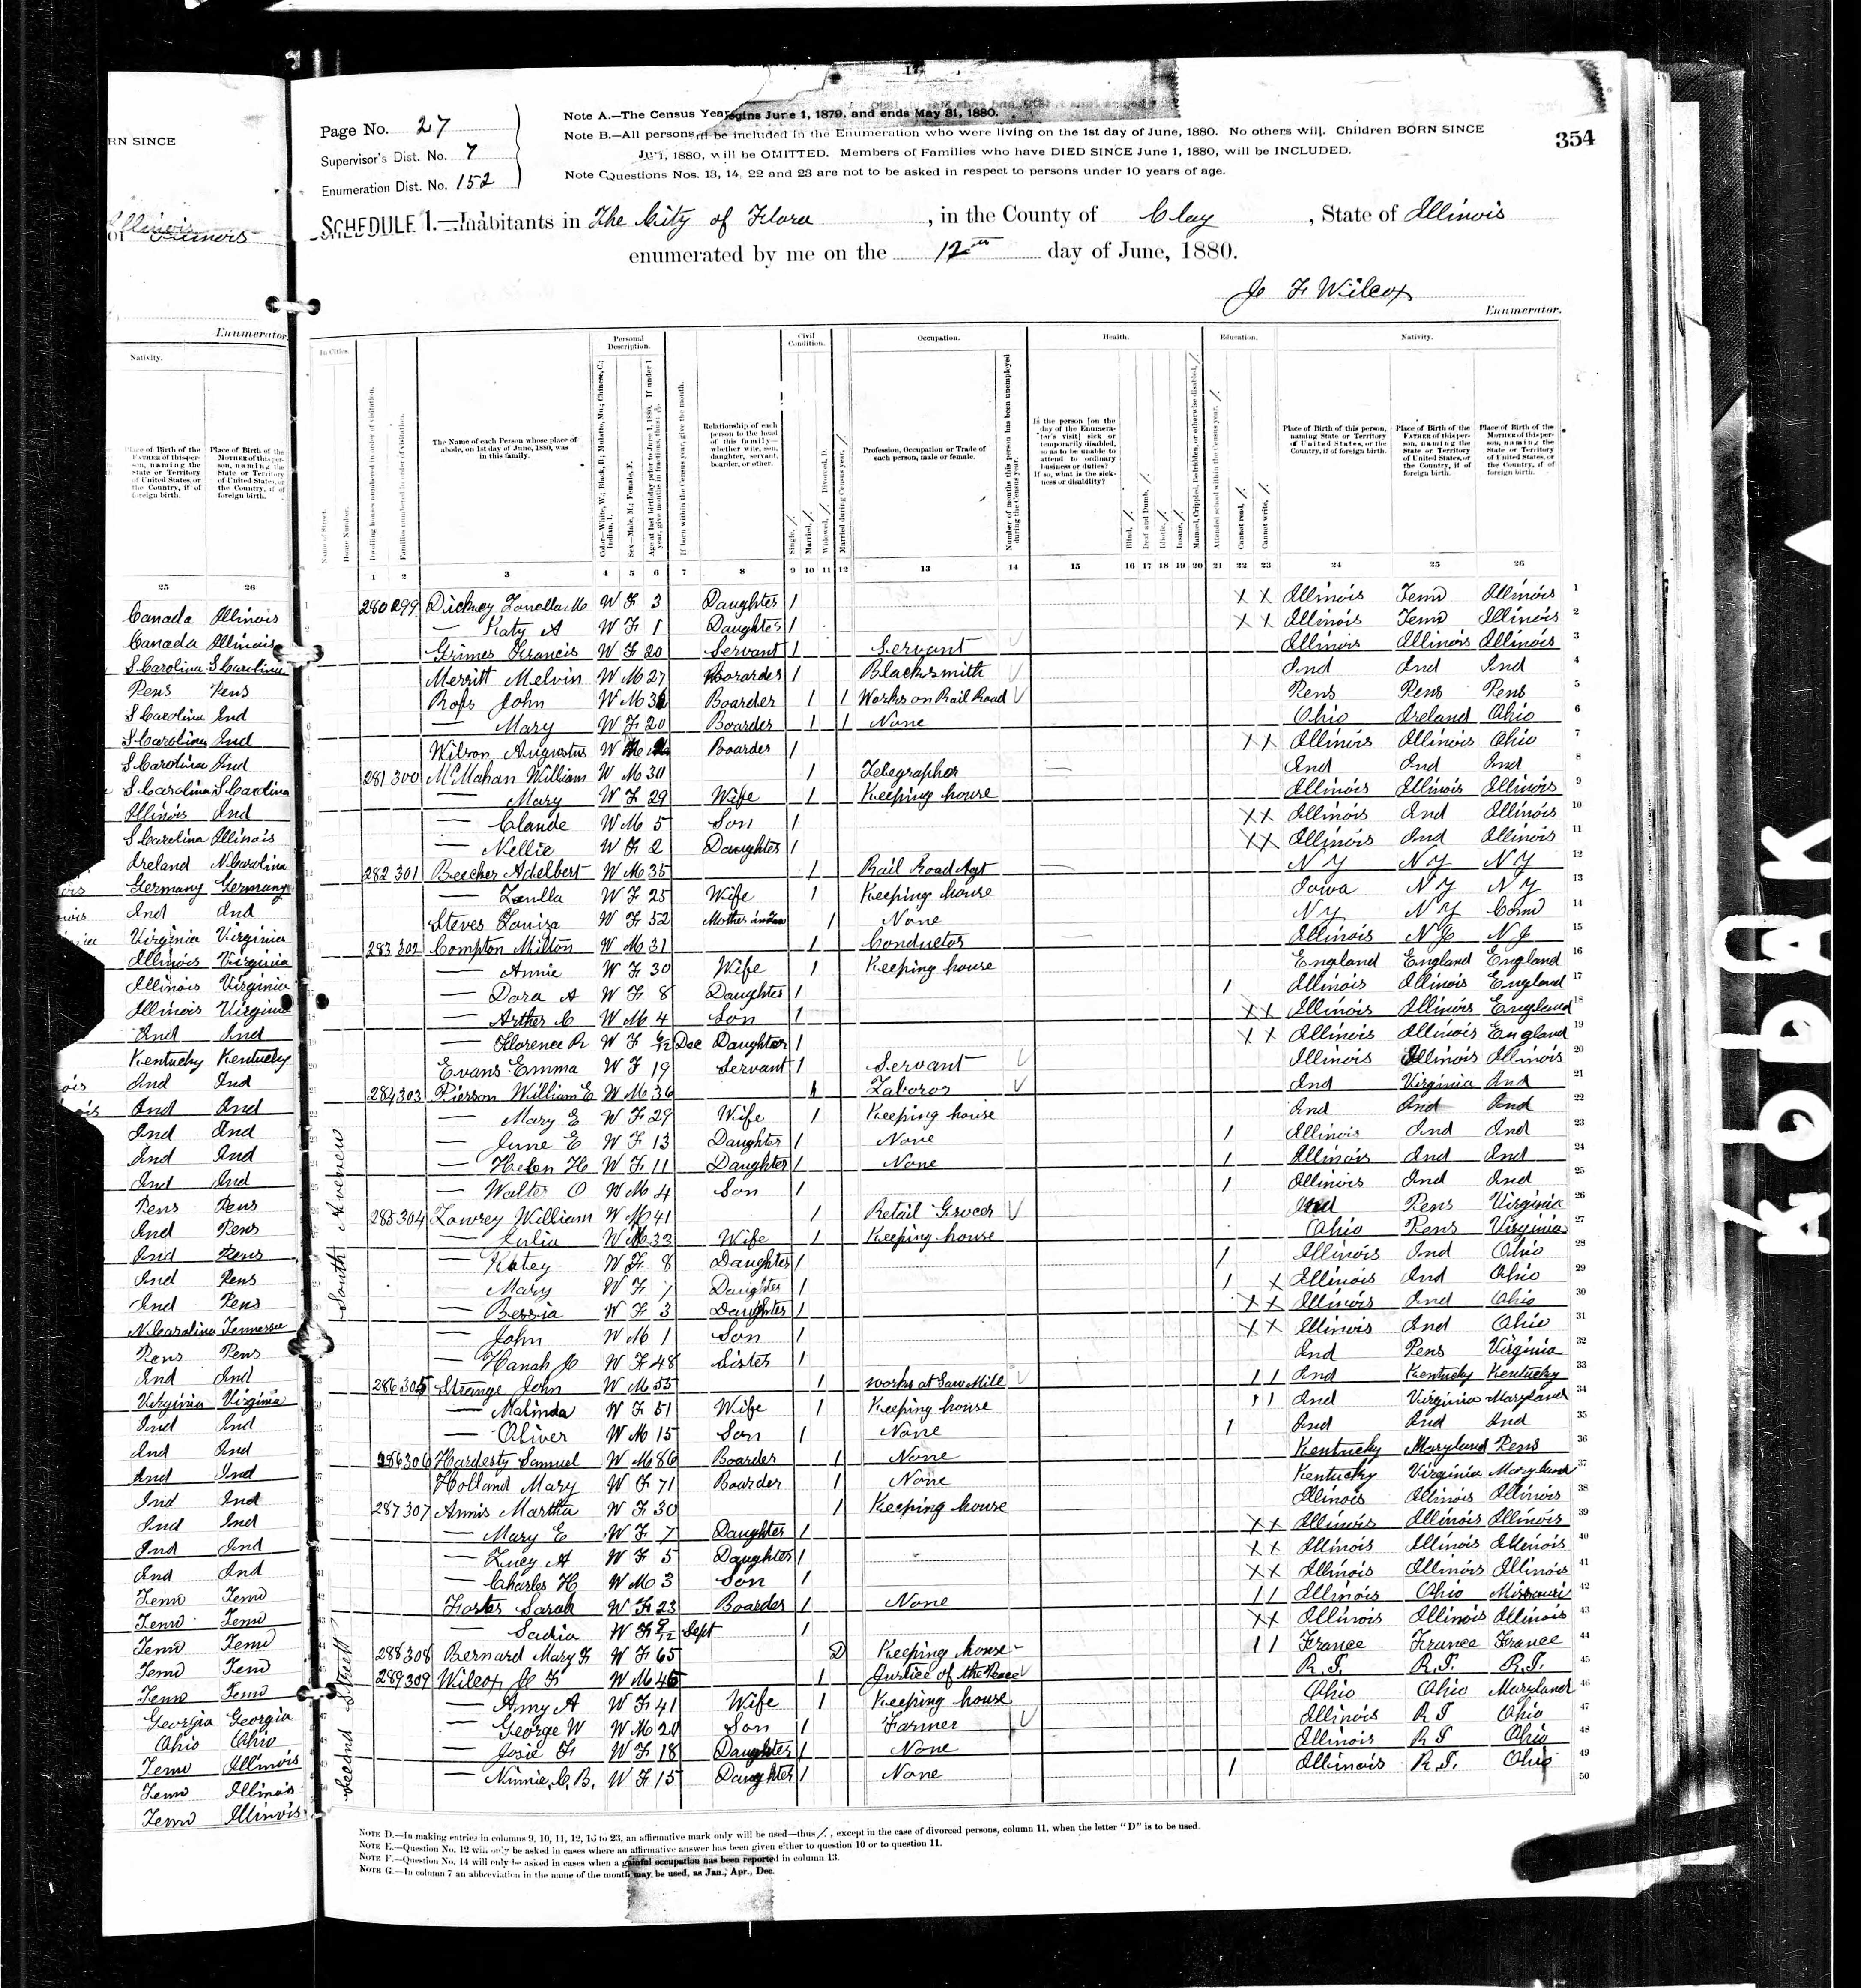 RN SINCE
Illinois
of Illinois
Enumerator.
Nativity.
Place of Birth of the FATHER of this person, naming the State or Territory of United States, or the Country, if of foreign birth.
Place of Birth of the MOTHER of this person, naming the State or Territory of United States, or the Country, if of foreign birth.
25 26
Canada Illinois
Canada Illinois
S Carolina S Carolina
Pens Pens
S Carolina Ind
S Carolina Ind
S Carolina Ind
S Carolina S Carolina
Illinois Ind
S Carolina Illinois
Ireland N Carolina
Germany Germany
Ind Ind
Virginia Virginia
Illinois Virginia
Illinois Virginia
Illinois Virginia
Ind Ind
Kentucky Kentucky
Ind Ind
Ind Ind
Ind Ind
Ind Ind
Ind Ind
Pens Pens
Ind Pens
Ind Pens
Ind Pens
Ind Pens
N Carolina Tennessee
Pens Pens
Ind Ind
Virginia Virginia
Ind Ind
Ind Ind
Ind Ind
Ind Ind
Ind Ind
Ind Ind
Ind Ind
Tenn Tenn
Tenn Tenn
Tenn Tenn
Tenn Tenn
Tenn Tenn
Georgia Georgia
Ohio Ohio
Tenn Illinois
Tenn Illinois
Tenn Illinois
Page No. 27
Supervisor's Dist. No. 7
Enumeration Dist. No. 152
Note A.—The Census Year begins June 1, 1879, and ends May 31, 1880.
Note B.—All persons will be included in the Enumeration who were living on the 1st day of June, 1880. No others will. Children BORN SINCE
June 1, 1880, will be OMITTED. Members of Families who have DIED SINCE June 1, 1880, will be INCLUDED.
Note C.—Questions Nos. 13, 14, 22 and 23 are not to be asked in respect to persons under 10 years of age.
354
SCHEDULE 1.—Inhabitants in The City of Flora, in the County of Clay, State of Illinois
enumerated by me on the 12th day of June, 1880.
J F Wilcox
Enumerator.
In Cities.
Name of Street.
House Number.
Dwelling houses numbered in order of visitation.
Families numbered in order of visitation.
The Name of each Person whose place of abode, on 1st day of June, 1880, was in this family.
Personal Description.
Color—White, W.; Black, B.; Mulatto, Mu.; Chinese, C.; Indian, I.
Sex—Male, M.; Female, F.
Age at last birthday prior to June 1, 1880. If under 1 year, give months in fractions, thus: 3/12.
If born within the Census year, give the month.
Relationship of each person to the head of this family—whether wife, son, daughter, servant, boarder, or other.
Civil Condition.
Single, /.
Married, /.
Widowed, /. Divorced, D.
Married during Census year, /.
Occupation.
Profession, Occupation or Trade of each person, male or female.
Number of months this person has been unemployed during the Census year.
Health.
Is the person [on the day of the Enumerator's visit] sick or temporarily disabled, so as to be unable to attend to ordinary business or duties? If so, what is the sickness or disability?
Blind, /.
Deaf and Dumb, /.
Idiotic, /.
Insane, /.
Maimed, Crippled, Bedridden, or otherwise disabled, /.
Education.
Attended school within the Census year, /.
Cannot read, /.
Cannot write, /.
Nativity.
Place of Birth of this person, naming State or Territory of United States, or the Country, if of foreign birth.
Place of Birth of the FATHER of this person, naming the State or Territory of United States, or the Country, if of foreign birth.
Place of Birth of the MOTHER of this person, naming the State or Territory of United States, or the Country, if of foreign birth.
1 2 3 4 5 6 7 8 9 10 11 12 13 14 15 16 17 18 19 20 21 22 23 24 25 26
280 299 Dickney W F 3 Daughter / X X Illinois Tenn Illinois 1
— Katy A W F 1 Daughter / X X Illinois Tenn Illinois 2
Grimes Francis W F 20 Servant / Servant Illinois Illinois Illinois 3
Merritt Melvin W M 27 Boarder / Blacksmith Ind Ind Ind 4
Ross John W M Boarder / / Works on Rail Road Pens Pens Pens 5
— Mary W F 20 Boarder / / None Ohio Ireland Ohio 6
Wilson Augustus W M Boarder / X X Illinois Illinois Ohio 7
281 300 McMahan William W M 30 / Telegrapher Ind Ind Ind 8
— Mary W F 29 Wife / Keeping house Illinois Illinois Illinois 9
— Claude W M 5 Son / X X Illinois Ind Illinois 10
— Nellie W F 2 Daughter / X X Illinois Ind Illinois 11
282 301 Beecher Adelbert W M 35 / Rail Road Agt N Y N Y N Y 12
— W F 25 Wife / Keeping house Iowa N Y N Y 13
Steves Louisa W F 52 Mother in Law / None N Y N Y Conn 14
283 302 Compton Milton W M 31 / Conductor Illinois N J N J 15
— Annie W F 30 Wife / Keeping house England England England 16
— Dora A W F 8 Daughter / / Illinois Illinois England 17
— Arther C W M 4 Son / X X Illinois Illinois England 18
— Florence R W F 6/12 Dec Daughter / X X Illinois Illinois England 19
Evans Emma W F 19 Servant / Servant Illinois Illinois Illinois 20
284 303 Pierson William E W M 36 / Laborer Ind Virginia Ind 21
— Mary E W F 29 Wife / Keeping house Ind Ind Ind 22
— June E W F 13 Daughter / None / Illinois Ind Ind 23
— Helen H W F 11 Daughter / None / Illinois Ind Ind 24
— Walter O W M 4 Son / / Illinois Ind Ind 25
285 304 Lowrey William W M 41 / Retail Grocer Ind Pens Virginia 26
— Julia W M 33 Wife / Keeping house Ohio Pens Virginia 27
— Katey W F 8 Daughter / / Illinois Ind Ohio 28
— Mary W F 7 Daughter / / X Illinois Ind Ohio 29
— Bessia W F 3 Daughter / X X Illinois Ind Ohio 30
— John W M 1 Son / X X Illinois Ind Ohio 31
— Hanah J W F 48 Sister / Ind Pens Virginia 32
286 305 Strange John W M 55 / works at Saw Mill / / Ind Kentucky Kentucky 33
— Malinda W F 51 Wife / Keeping house / / Ind Virginia Maryland 34
— Oliver W M 15 Son / None / Ind Ind Ind 35
286 306 Hardesty Samuel W M 86 Boarder / None Kentucky Maryland Pens 36
Holland Mary W F 71 Boarder / None Kentucky Virginia Maryland 37
287 307 Annis Martha W F 30 / Keeping house Illinois Illinois Illinois 38
— Mary E W F 7 Daughter / X X Illinois Illinois Illinois 39
— Lucy A W F 5 Daughter / X X Illinois Illinois Illinois 40
— Charles H W M 3 Son / X X Illinois Illinois Illinois 41
Foster Sarah W F 23 Boarder / None / / Illinois Ohio Missouri 42
— Sadia W F 9/12 Sept / X X Illinois Illinois Illinois 43
288 308 Bernard Mary F W F 65 D Keeping house / / France France France 44
289 309 Wilcox J F W M 45 / Justice of the Peace R.I. R.I. R.I. 45
— Amy A W F 41 Wife / Keeping house Ohio Ohio Maryland 46
— George W W M 20 Son / Farmer Illinois R I Ohio 47
— Josie F W F 18 Daughter / None Illinois R I Ohio 48
— Ninnie C. B. W F 15 Daughter / None / Illinois R.I. Ohio 49
50
South Avenew
Second Street
Note D.—In making entries in columns 9, 10, 11, 12, 16 to 23, an affirmative mark only will be used—thus /, except in the case of divorced persons, column 11, when the letter "D" is to be used.
Note E.—Question No. 12 will only be asked in cases where an affirmative answer has been given either to question 10 or to question 11.
Note F.—Question No. 14 will only be asked in cases when a gainful occupation has been reported in column 13.
Note G.—In column 7 an abbreviation in the name of the month may be used, as Jan., Apr., Dec.
KODAK